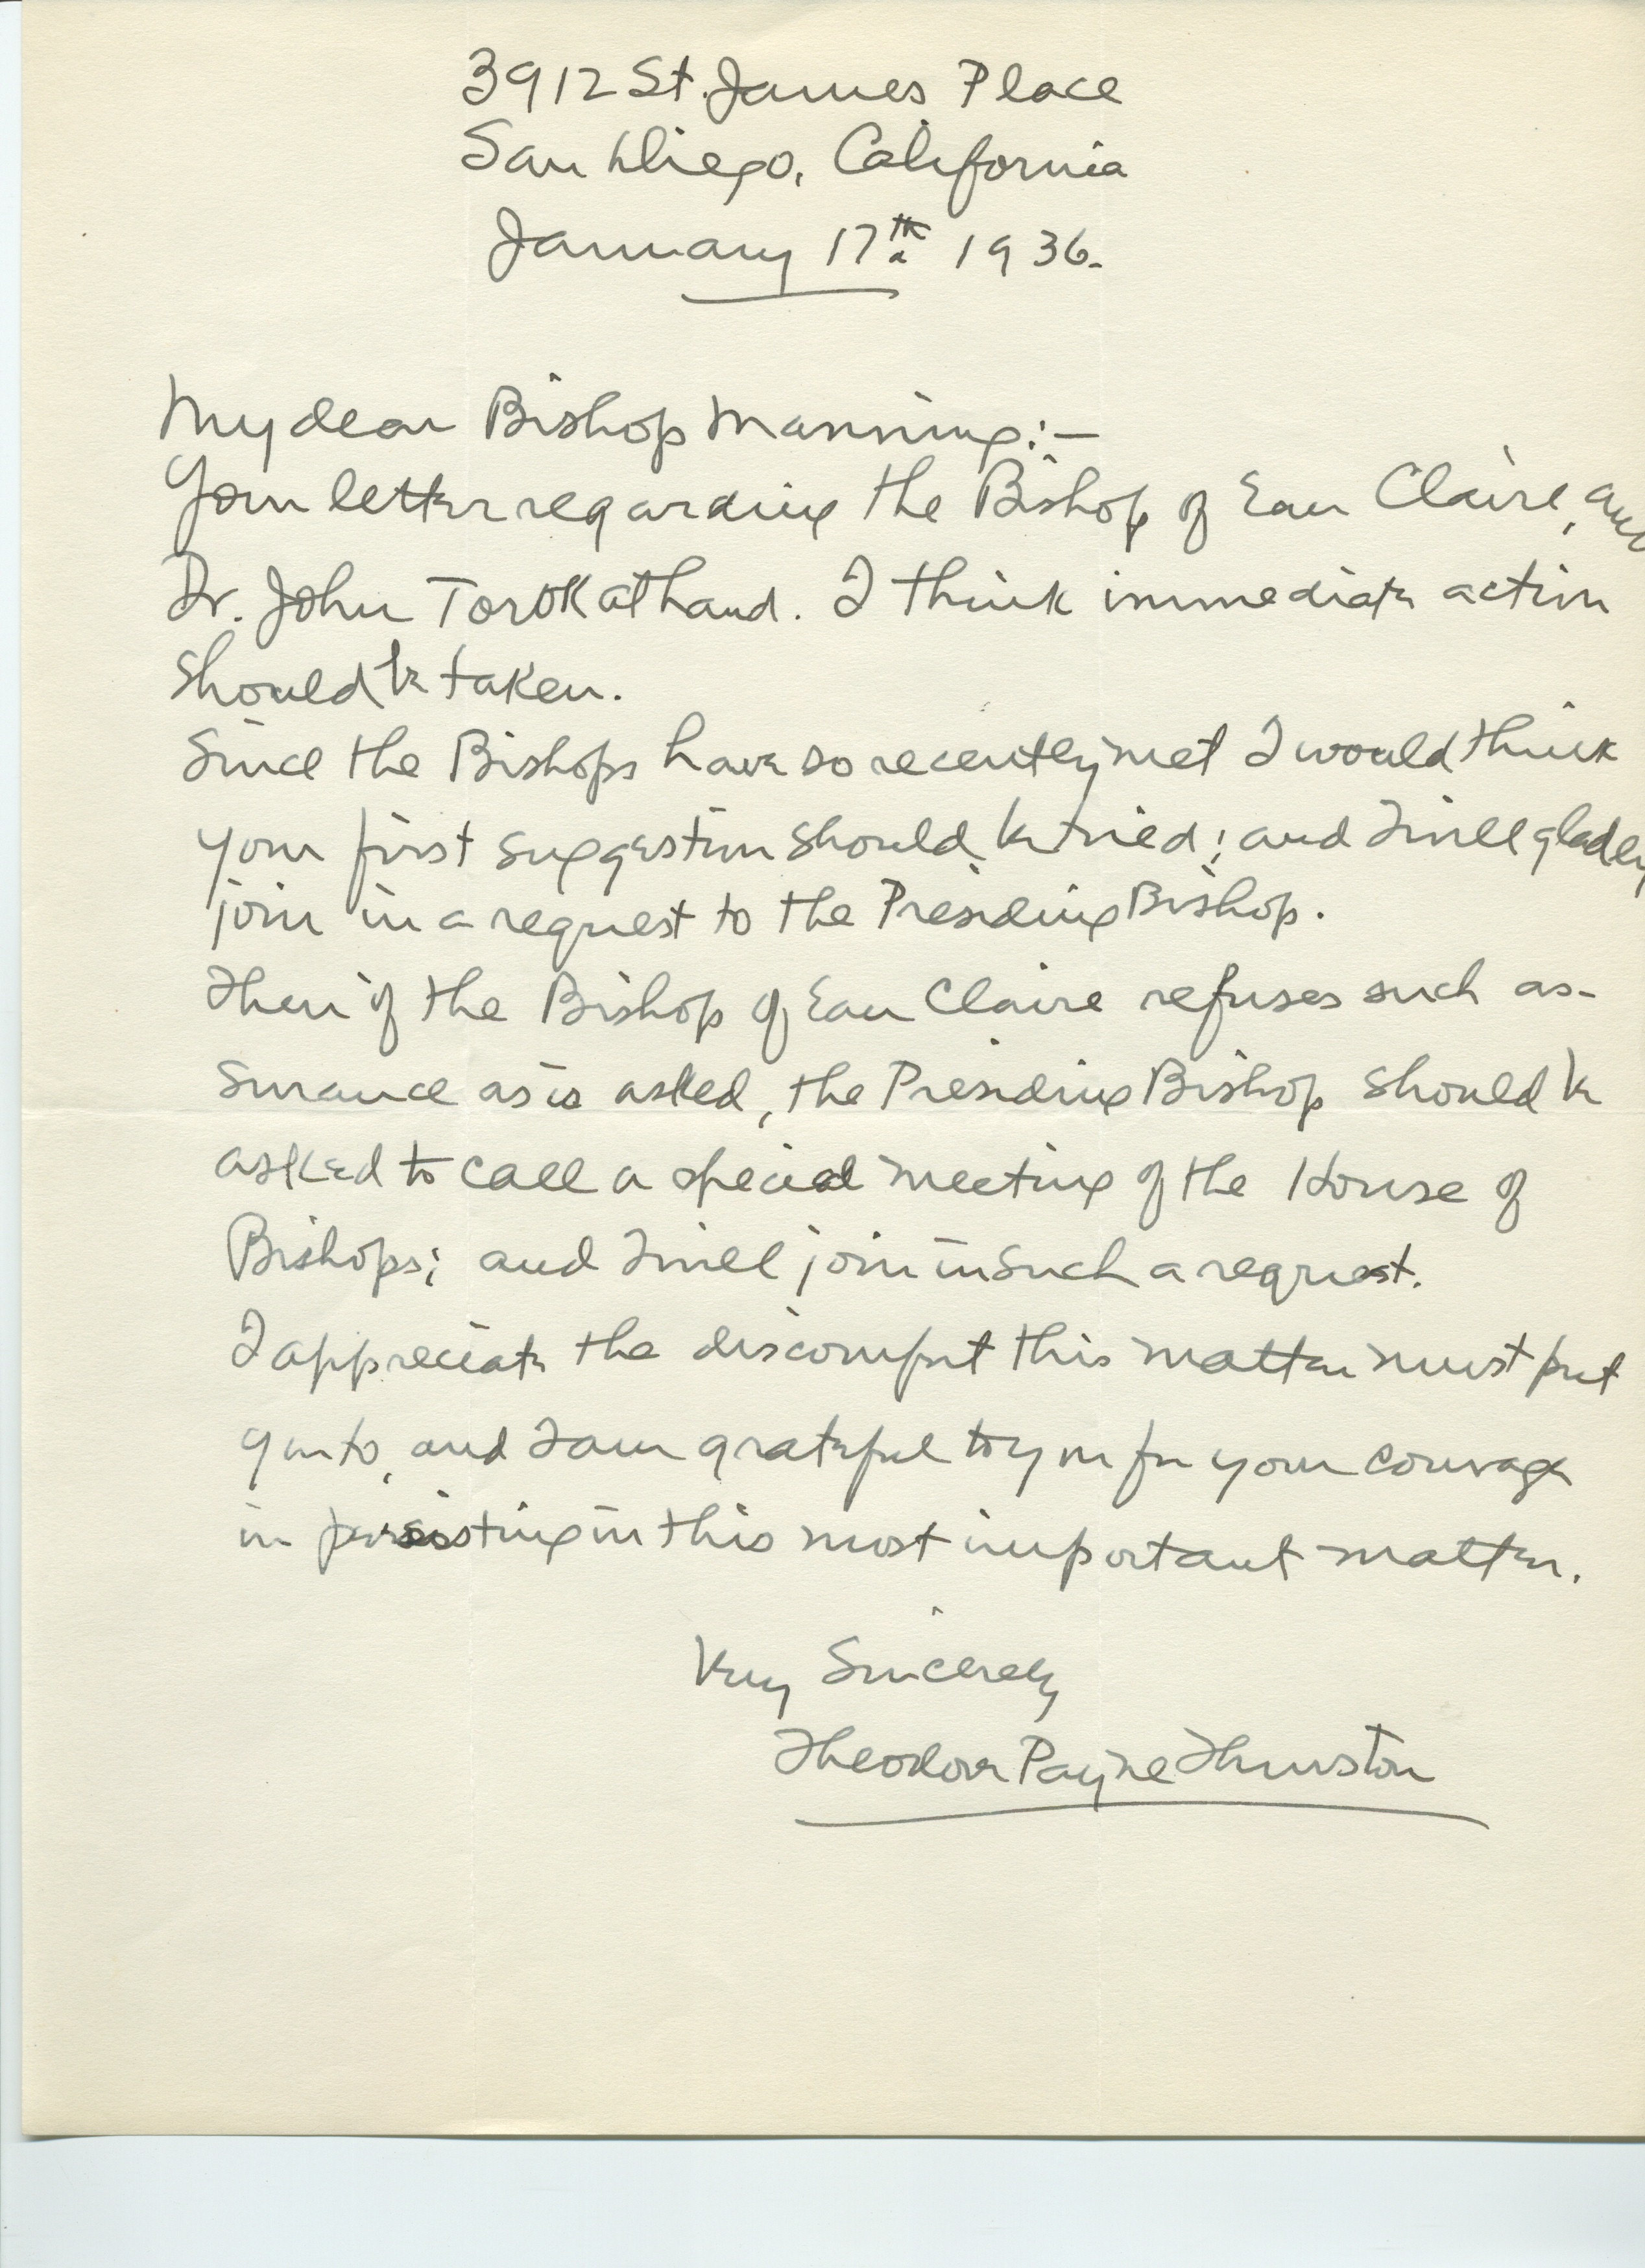 3912 St. James Place
San Diego, California
January 17th 1936.
My dear Bishop Manning:—
Your letter regarding the Bishop of Eau Claire, and
Dr. John Torok at hand. I think immediate action
should be taken.
Since the Bishops have so recently met I would think
your first suggestion should be tried; and I will gladly
join in a request to the Presiding Bishop.
Then if the Bishop of Eau Claire refuses such as-
surance as is asked, the Presiding Bishop should be
asked to call a special meeting of the House of
Bishops; and I will join in such a request.
I appreciate the discomfort this matter must put
you to, and I am grateful to you for your courage
in persisting in this most important matter.
Very Sincerely
Theodore Payne Thurston